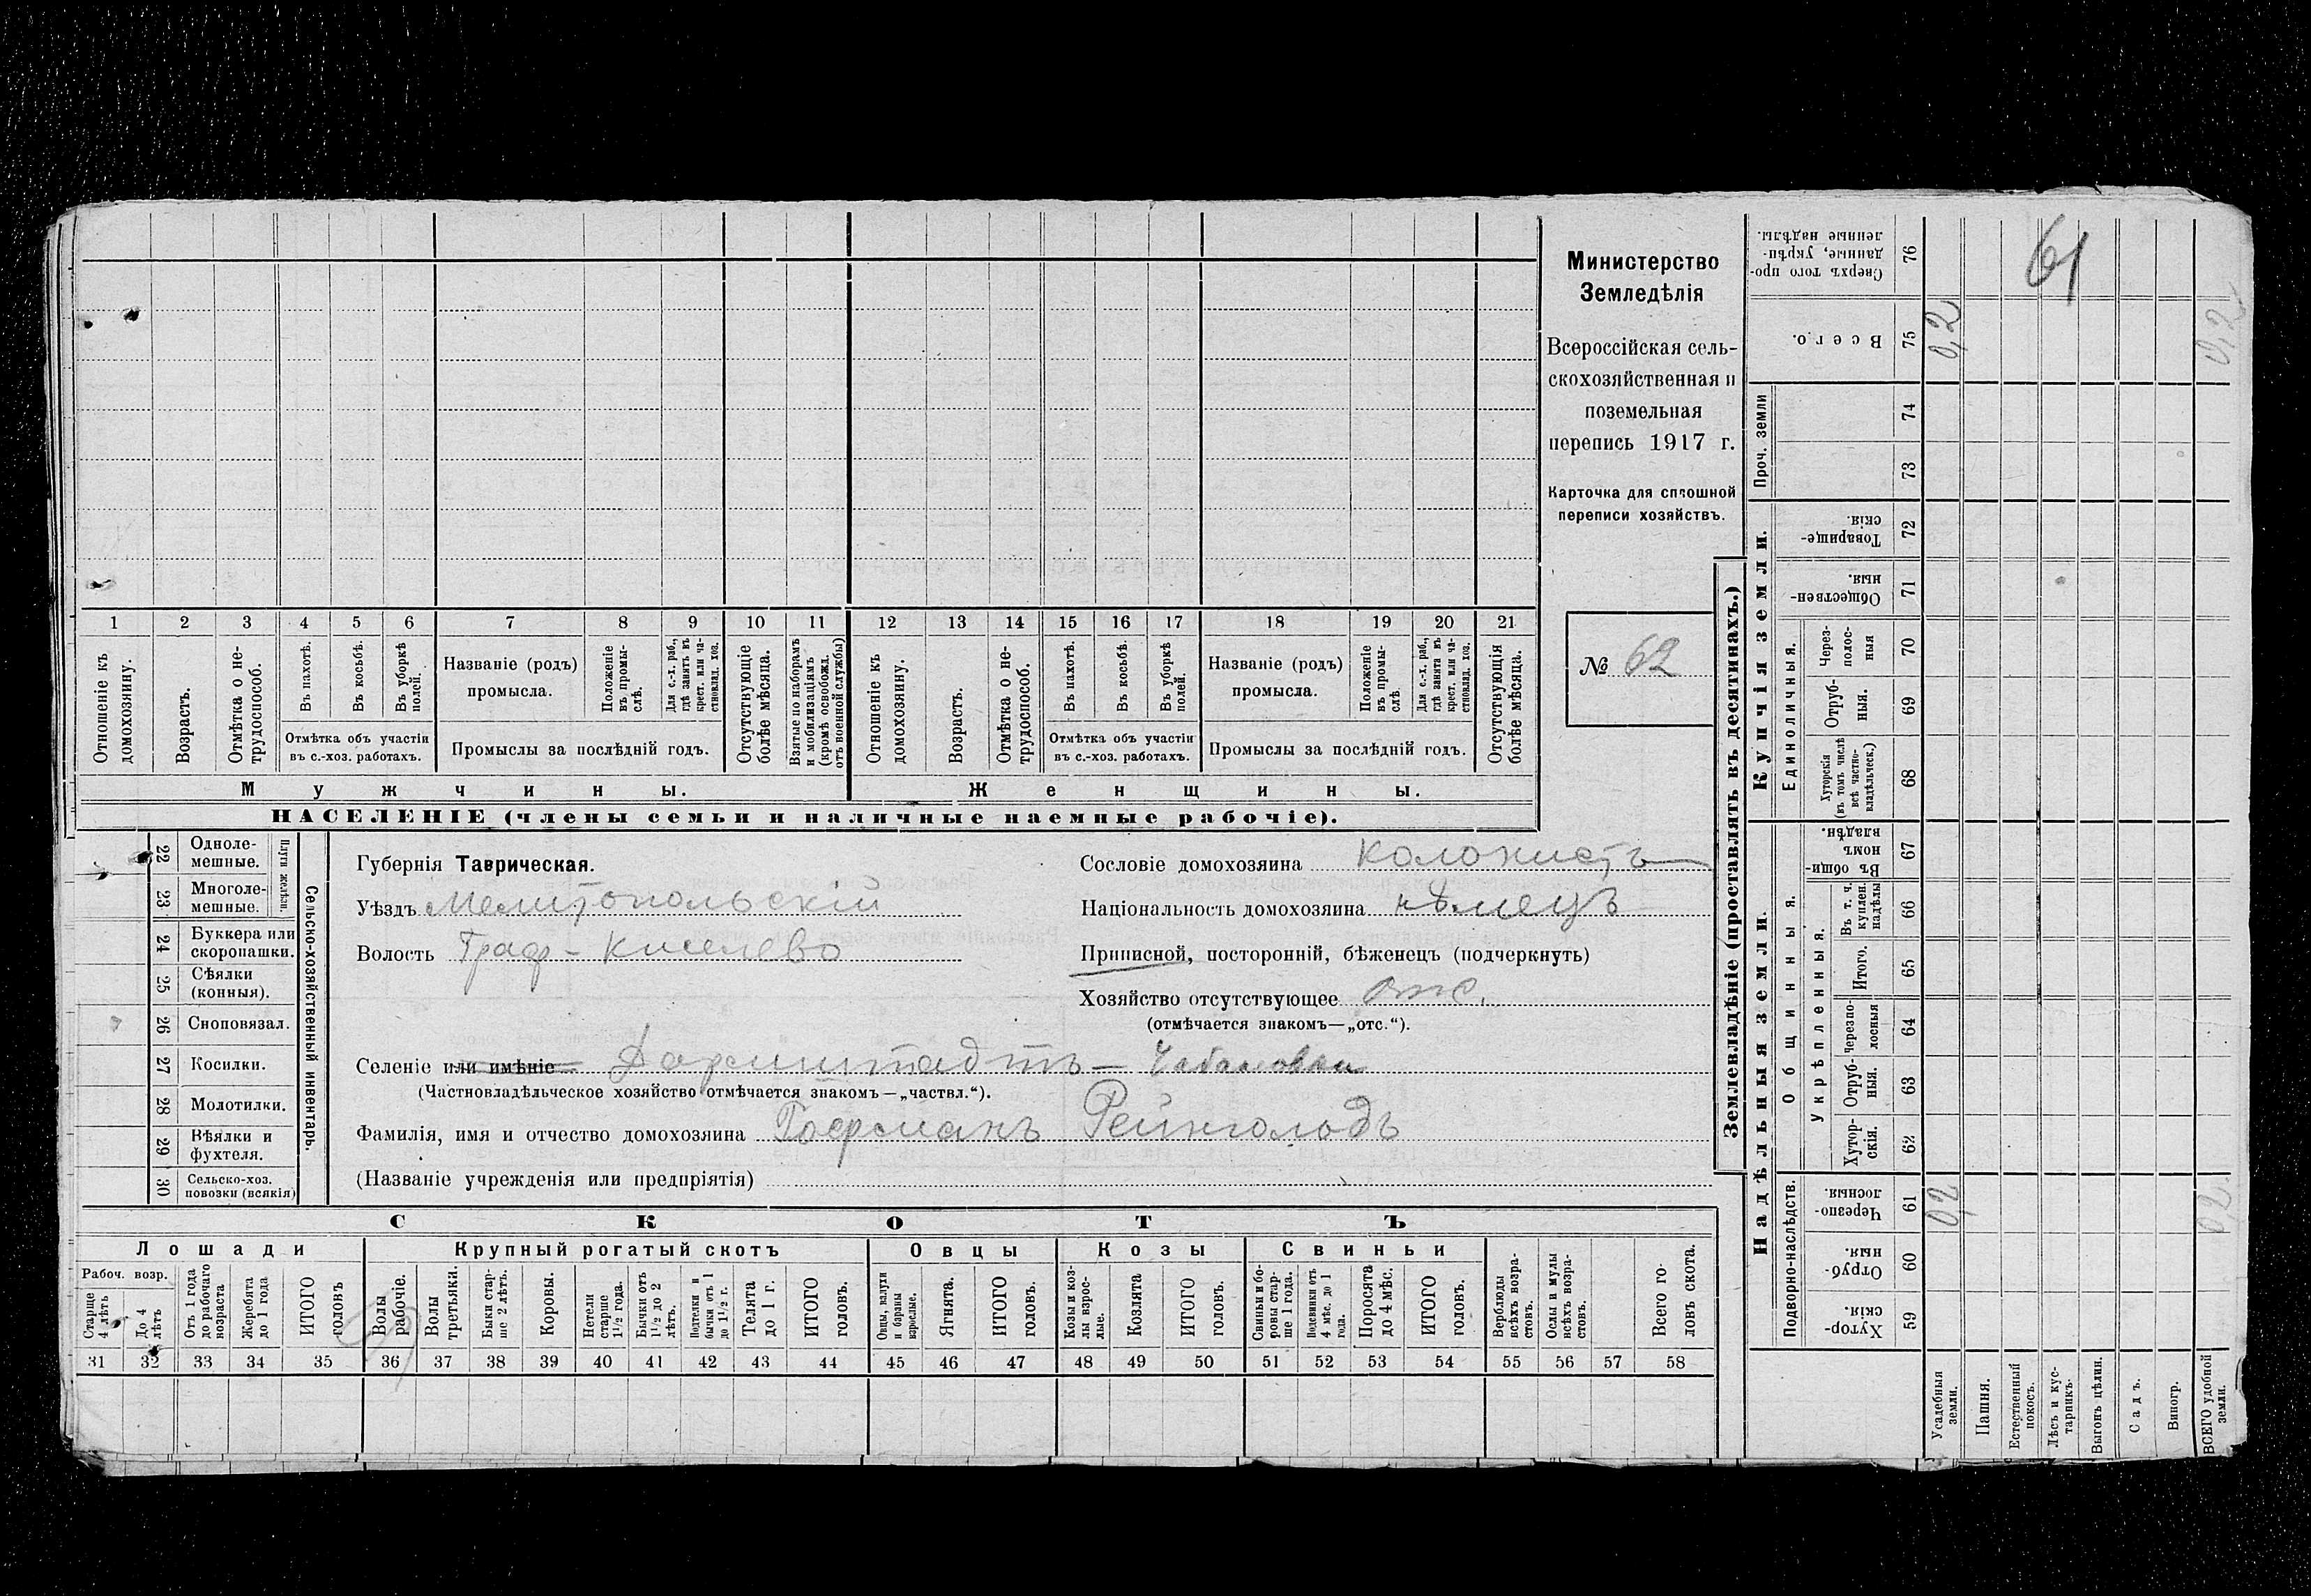 Министерство
Земледѣлія
Всероссійская сель-
скохозяйственная и
поземельная
перепись 1917 г.
Карточка для сплошной
переписи хозяйствъ.
№ 62
61
1 2 3 4 5 6 7 8 9 10 11 12 13 14 15 16 17 18 19 20 21
Отношеніе къ домохозяину.
Возрастъ.
Отмѣтка о не-трудоспособ.
Въ пахотѣ.
Въ косьбѣ.
Въ уборкѣ полей.
Отмѣтка объ участіи
въ с.-хоз. работахъ.
Названіе (родъ)
промысла.
Положеніе въ промы-слѣ.
Для с.-х. раб., гдѣ занятъ въ крест. или ча-стновлад. хоз.
Промыслы за послѣдній годъ.
Отсутствующіе болѣе мѣсяца.
Взятые по наборамъ и мобилизаціямъ (кромѣ освобожд. отъ военной службы)
Отношеніе къ домохозяину.
Возрастъ.
Отмѣтка о не-трудоспособ.
Въ пахотѣ.
Въ косьбѣ.
Въ уборкѣ полей.
Отмѣтка объ участіи
въ с.-хоз. работахъ.
Названіе (родъ)
промысла.
Положеніе въ промы-слѣ.
Для с.-х. раб., гдѣ занята въ крест. или ча-стновлад. хоз.
Промыслы за послѣдній годъ.
Отсутствующія болѣе мѣсяца.
Мужчины.
Женщины.
НАСЕЛЕНІЕ (члены семьи и наличные наемные рабочіе).
22 Одноле-мешные.
23 Многоле-мешные.
Плуги желѣзн.
24 Буккера или скоропашки.
25 Сѣялки (конныя).
26 Сноповязал.
27 Косилки.
28 Молотилки.
29 Вѣялки и фухтеля.
30 Сельско-хоз. повозки (всякія)
Сельско-хозяйственный инвентарь.
Губернія Таврическая.
Уѣздъ Мелитопольскій
Волость Граф-Киселево
Сословіе домохозяина колонистъ
Національность домохозяина нѣмецъ
Приписной, посторонній, бѣженецъ (подчеркнуть)
Хозяйство отсутствующее отс.
(отмѣчается знакомъ—„отс.“).
Селеніе или имѣніе Дармштадтъ —
(Частновладѣльческое хозяйство отмѣчается знакомъ—„частвл.“).
Фамилія, имя и отчество домохозяина Гофманъ Рейнгольдъ
(Названіе учрежденія или предпріятія)
СКОТЪ
Лошади
Крупный рогатый скотъ
Овцы
Козы
Свиньи
Рабоч. возр.
Старше 4 лѣтъ
До 4 лѣтъ
Отъ 1 года до рабочаго возраста
Жеребята до 1 года
ИТОГО головъ
Волы рабочіе.
Волы третьяки.
Быки стар-ше 2 лѣтъ.
Коровы.
Нетели старше 1½ года.
Бычки отъ 1½ до 2 лѣтъ.
Подтелки и бычки отъ 1 до 1½ г.
Телята до 1 г.
ИТОГО головъ.
Овцы, валухи и бараны взрослые.
Ягнята.
ИТОГО головъ.
Козы и коз-лы взрос-лые.
Козлята
ИТОГО головъ.
Свиньи и бо-ровы стар-ше 1 года.
Подсвинки отъ 4 мѣс. до 1 года.
Поросята до 4 мѣс.
ИТОГО головъ.
Верблюды всѣхъ возра-стовъ.
Ослы и мулы всѣхъ возра-стовъ.
Всего го-ловъ скота.
31 32 33 34 35 36 37 38 39 40 41 42 43 44 45 46 47 48 49 50 51 52 53 54 55 56 57 58
Землевладѣніе (проставлять въ десятинахъ.)
Купчія земли.
Надѣльныя земли.
Проч. земли
Единоличныя.
Общинныя.
Укрѣпленныя.
Подворно-наслѣдств.
76 Сверхъ того про-данные, укрѣп-ленные надѣлы.
75 Всего. 0,2 0,2
74
73
72 Товарище-скія.
71 Обществен-ныя.
70 Через-полос-ныя
69 Отруб-ныя.
68 Хуторскія (въ томъ числѣ всѣ частно-владѣльческ.)
67 Въ общин-номъ владѣн.
66 Въ т. ч. куплен. надѣлы
65 Итого.
64 Черезпо-лосныя
63 Отруб-ныя.
62 Хутор-скія.
61 Черезпо-лосныя. 0,2 0,2
60 Отруб-ныя.
59 Хутор-скія.
Усадебныя земли.
Пашня.
Естественный покосъ.
Лѣсъ и кус-тарникъ.
Выгонъ цѣлин.
Садъ.
Виногр.
ВСЕГО удобной земли.